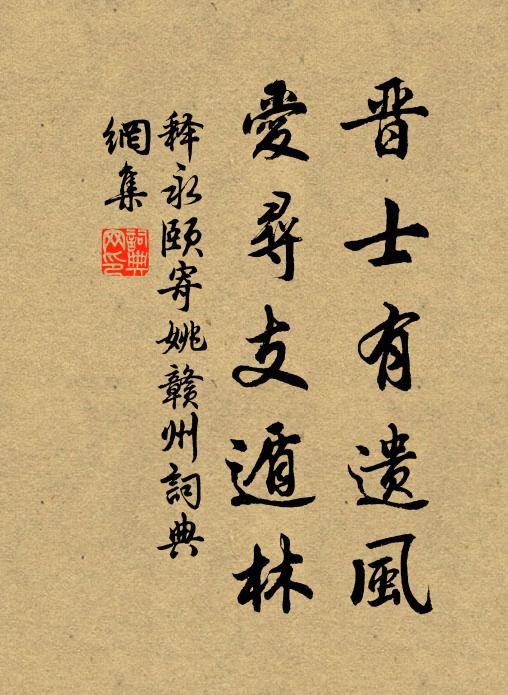 晋士有遗風
愛尋支遁林
释永頤寄姚赣州詞典
網集
詞典
网印